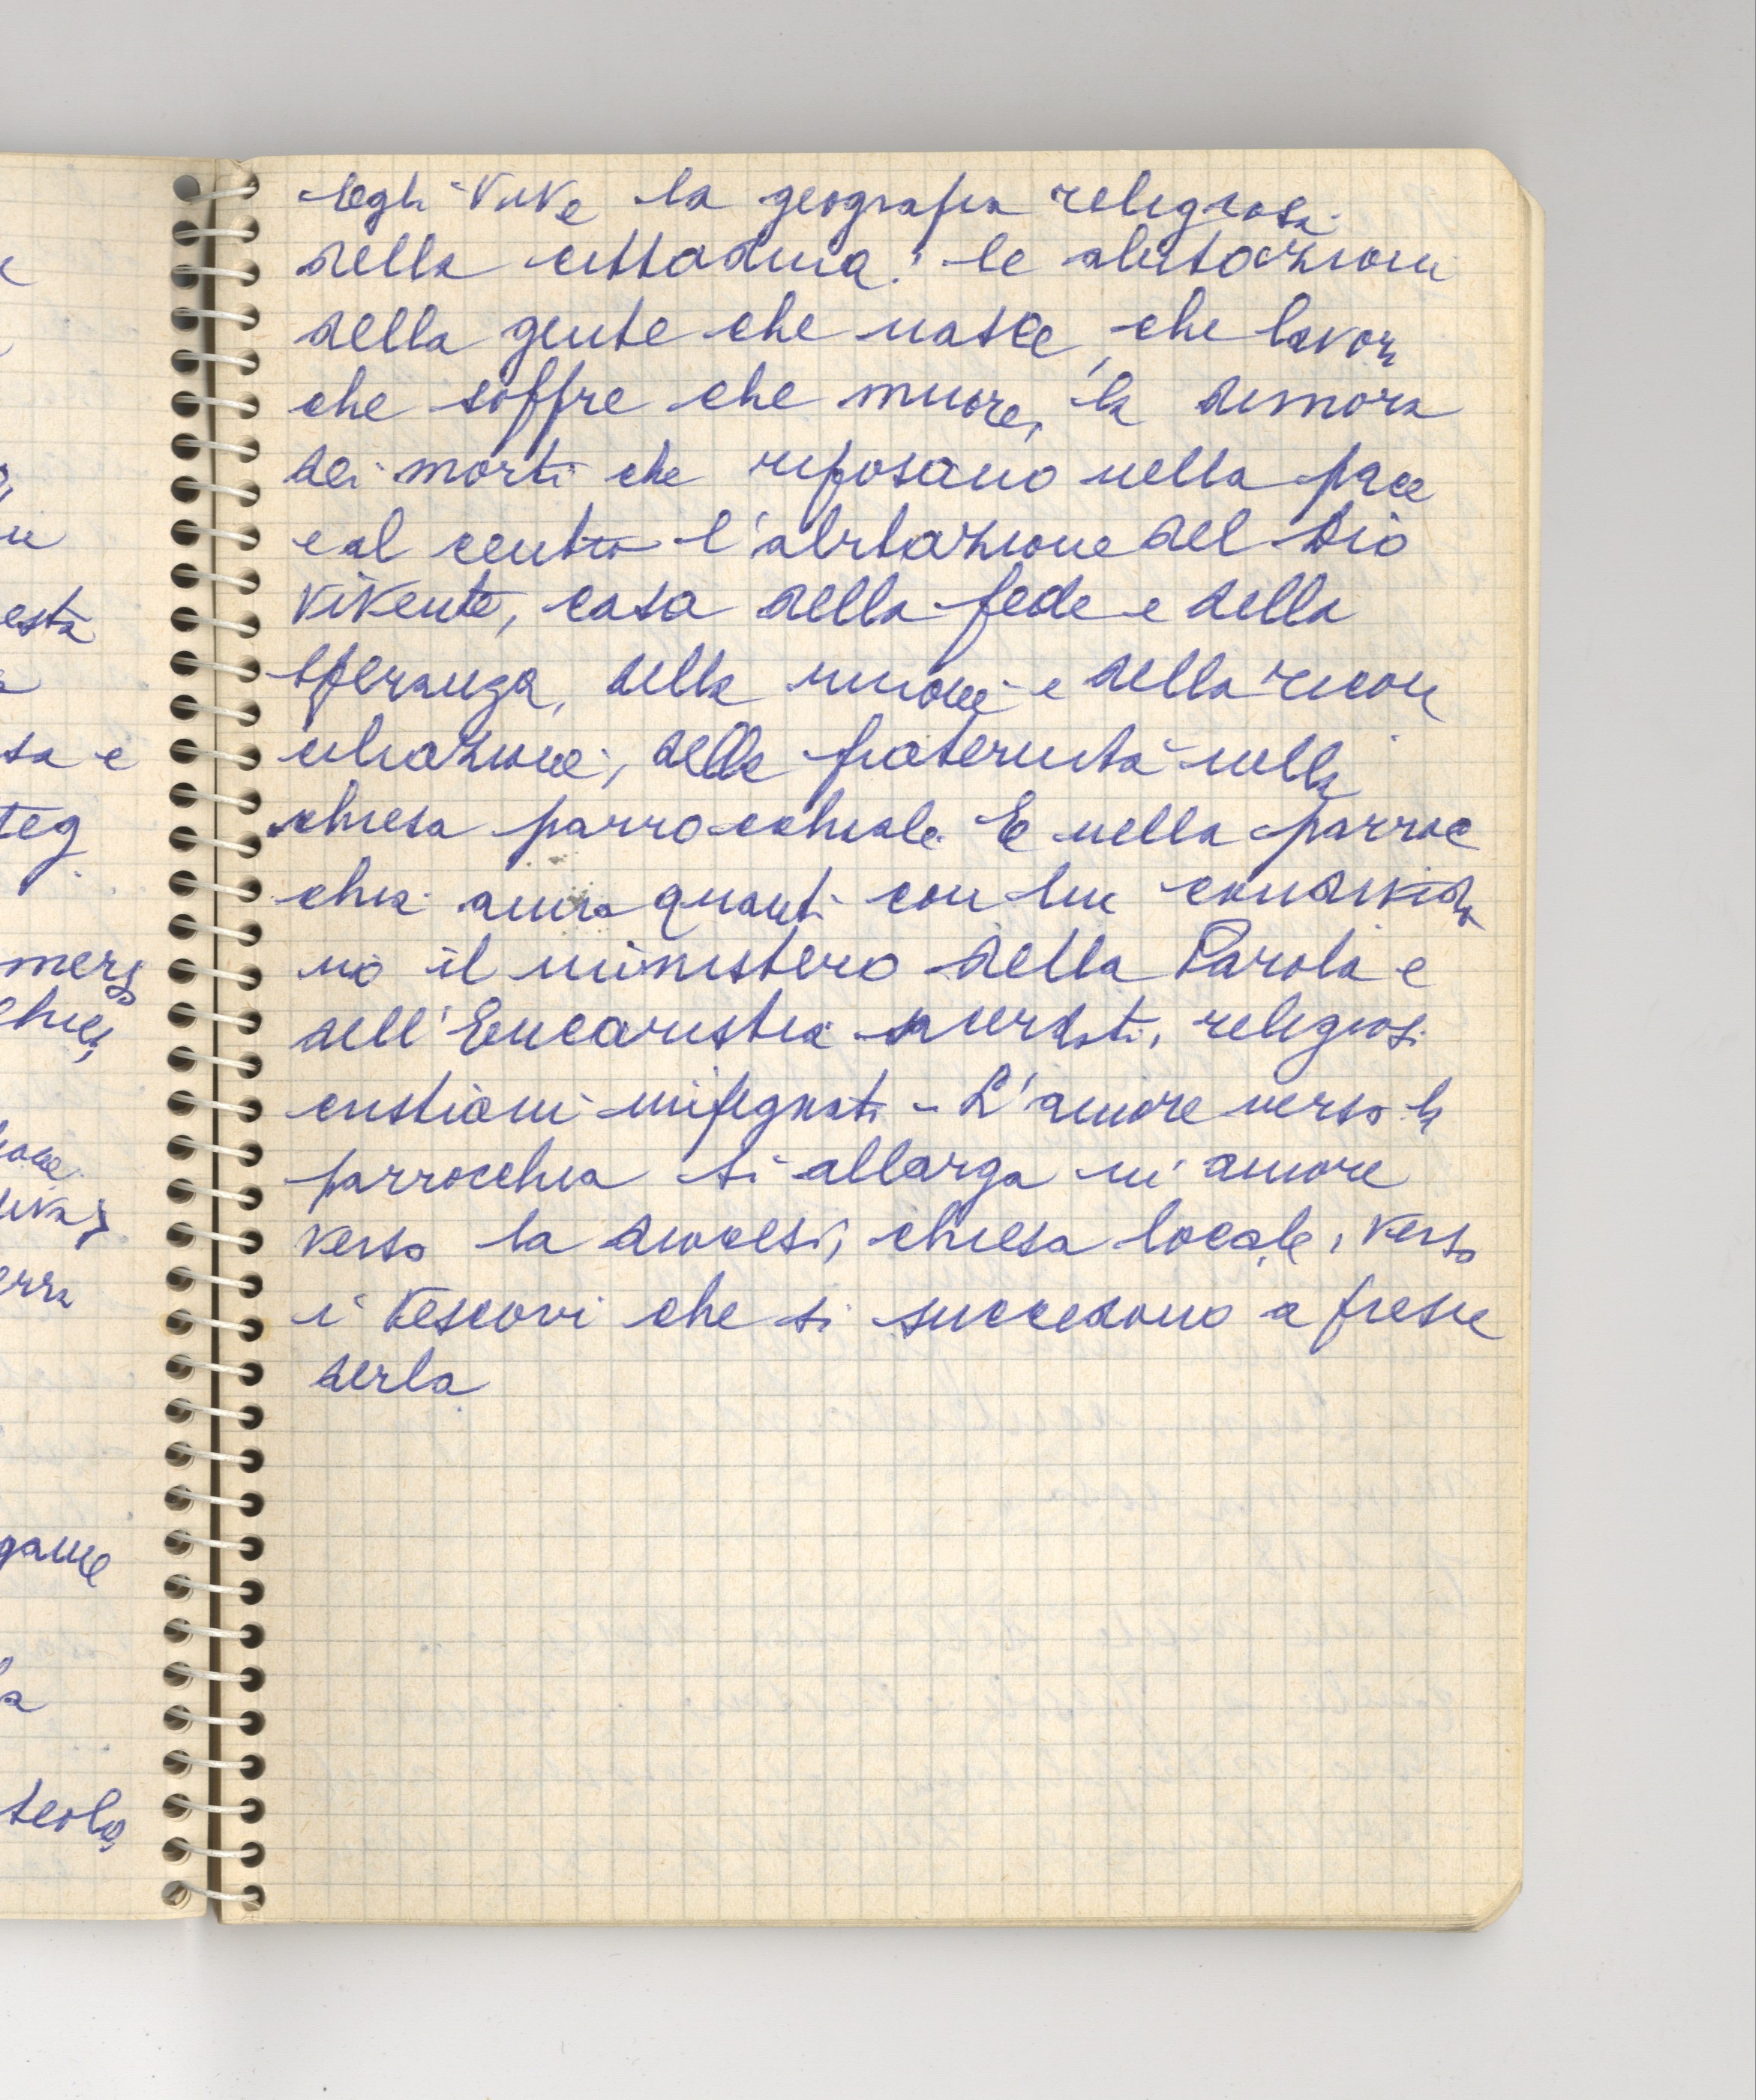 Egli vive la geografia religiosa
della cittadina: le abitazioni
della gente che nasce, che lavora
che soffre che muore, la dimora
dei morti che riposano nella pace
e al centro l'abitazione del Dio
vivente, casa della fede e della
speranza, della unione e della ricon
ciliazione, della fraternità nella
chiesa parrocchiale. E nella parroc
chia ama quanti con lui condivido
no il ministero della Parola e
dell'Eucaristia sacerdoti, religiosi
cristiani impegnati - L'amore verso la
parrocchia si allarga in amore
verso la diocesi, chiesa locale, verso
i Vescovi che si succedono a presie
derla
esta
sa e
teg
merg
erra
game
la
teolo